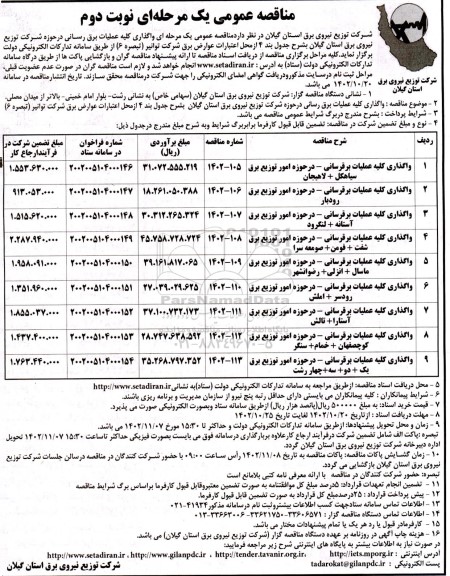 مناقصه عمومی یک مرحله‌ای نوبت دوم
شرکت توزیع نیروی برق استان گیلان در نظر دارد مناقصه عمومی یک مرحله ای واگذاری کلیه عملیات برق رسانی درحوزه شرکت توزیع
نیروی برق استان گیلان بشرح جدول بند ۴ ازمحل اعتبارات عوارض برق شرکت توانیر (تبصره ۶) از طریق سامانه تدارکات الکترونیکی دولت
برگزار نماید.کلیه مراحل برگزاری مناقصه از دریافت اسناد مناقصه تا ارائه پیشنهاد مناقصه گران و بازگشایی پاکت ها از طریق درگاه سامانه
تدارکات الکترونیکی دولت (ستاد) به آدرس : www.setadiran.ir انجام خواهد شد و لازم است مناقصه گران در صورت عدم عضویت قبلی،
مراحل ثبت نام درسایت مذکورودریافت گواهی امضای الکترونیکی را جهت شرکت درمناقصه محقق سازند. تاریخ انتشارمناقصه در سامانه
۱۴۰۲/۱۰/۲۰ می باشد.
شرکت توزیع نیروی برق
استان گیلان
۱ - نشانی دستگاه مناقصه گزار: شرکت توزیع نیروی برق استان گیلان (سهامی خاص) به نشانی رشت- بلوار امام خمینی- بالاتر از میدان مصلی.
۲ - موضوع مناقصه : واگذاری کلیه عملیات برق رسانی درحوزه شرکت توزیع نیروی برق استان گیلان بشرح جدول بند ۴ ازمحل اعتبارات عوارض برق شرکت توانیر (تبصره ۶)
۳ - شرایط پرداخت : بشرح مندرج دربرگ شرایط عمومی مناقصه می باشد.
۴ - نوع و مبلغ تضمین شرکت در مناقصه: تضمین قابل قبول کارفرما برابربرگ شرایط وبه شرح مبلغ مندرج درجدول ذیل:
ردیف شرح مناقصه شماره مناقصه مبلغ برآوردی (ریال) شماره فراخوان در سامانه ستاد مبلغ تضمین شرکت در فرآیندارجاع کار
۱ واگذاری کلیه عملیات برقرسانی - درحوزه امور توزیع برق سیاهکل + لاهیجان ۱۴۰۲-۱۰۵ ۳۱.۰۷۲.۵۵۵.۲۱۹ ۲۰۰۲۰۰۵۱۰۴۰۰۰۱۴۶ ۱.۵۵۳.۶۳۰.۰۰۰
۲ واگذاری کلیه عملیات برقرسانی - درحوزه امور توزیع برق رودبار ۱۴۰۲-۱۰۶ ۱۸.۲۶۱.۰۵۰.۳۸۸ ۲۰۰۲۰۰۵۱۰۴۰۰۰۱۴۷ ۹۱۳.۰۵۳.۰۰۰
۳ واگذاری کلیه عملیات برقرسانی - درحوزه امور توزیع برق آستانه + لنگرود ۱۴۰۲-۱۰۷ ۳۰.۳۱۲.۲۶۵.۳۲۴ ۲۰۰۲۰۰۵۱۰۴۰۰۰۱۴۸ ۱.۵۱۵.۶۲۰.۰۰۰
۴ واگذاری کلیه عملیات برقرسانی - درحوزه امور توزیع برق شفت + فومن + صومعه سرا ۱۴۰۲-۱۰۸ ۴۵.۷۵۸.۷۲۸.۷۲۴ ۲۰۰۲۰۰۵۱۰۴۰۰۰۱۴۹ ۲.۲۸۷.۹۴۰.۰۰۰
۵ واگذاری کلیه عملیات برقرسانی - درحوزه امور توزیع برق ماسال + انزلی + رضوانشهر ۱۴۰۲-۱۰۹ ۳۹.۱۶۱.۸۱۷.۰۶۵ ۲۰۰۲۰۰۵۱۰۴۰۰۰۱۵۰ ۱.۹۵۸.۰۹۱.۰۰۰
۶ واگذاری کلیه عملیات برقرسانی - درحوزه امور توزیع برق رودسر + املش ۱۴۰۲-۱۱۰ ۲۷.۰۳۹.۰۲۹.۶۲۵ ۲۰۰۲۰۰۵۱۰۴۰۰۰۱۵۱ ۱.۳۵۱.۹۶۰.۰۰۰
۷ واگذاری کلیه عملیات برقرسانی - درحوزه امور توزیع برق آستارا + تالش ۱۴۰۲-۱۱۱ ۳۷.۱۰۰.۷۳۲.۱۷۳ ۲۰۰۲۰۰۵۱۰۴۰۰۰۱۵۲ ۱.۸۵۵.۰۳۷.۰۰۰
۸ واگذاری کلیه عملیات برقرسانی - درحوزه امور توزیع برق کوچصفهان + خمام + سنگر ۱۴۰۲-۱۱۲ ۲۸.۷۴۷.۶۳۸.۵۹۲ ۲۰۰۲۰۰۵۱۰۴۰۰۰۱۵۳ ۱.۴۳۷.۴۰۰.۰۰۰
۹ واگذاری کلیه عملیات برقرسانی - درحوزه امور توزیع برق یک + دو + سه + چهار رشت ۱۴۰۲-۱۱۳ ۳۵.۲۶۸.۷۹۷.۳۵۲ ۲۰۰۲۰۰۵۱۰۴۰۰۰۱۵۴ ۱.۷۶۳.۴۴۰.۰۰۰
۵ - محل دریافت اسناد مناقصه: ازطریق مراجعه به سامانه تدارکات الکترونیکی دولت (ستاد)به نشانی http://www.setadiran.ir
۶ - شرایط پیمانکاران : کلیه پیمانکاران می بایستی دارای حداقل رتبه پنج نیرو از سازمان مدیریت و برنامه ریزی باشند.
۷ - قیمت خرید اسناد: به مبلغ ۵۰۰۰۰۰ ریال(پانصد هزار ریال) ازطریق سامانه ستاد وبصورت الکترونیکی صورت می پذیرد.
۸ - مهلت دریافت اسناد : ازتاریخ ۱۴۰۲/۱۰/۲۰ لغایت تاریخ ۱۴۰۲/۱۰/۲۵
۹ - زمان و محل تحویل پیشنهادها: ازطریق سامانه تدارکات الکترونیکی دولت و حداکثر تا ۱۵:۳۰ مورخ ۱۴۰۲/۱۱/۰۷ می باشد.
تبصره :پاکت الف شامل تضمین شرکت درفرآیند ارجاع کارعلاوه بربارگذاری درسامانه فوق می بایست بصورت فیزیکی حداکثر تاساعت ۱۵:۳۰ ۱۴۰۲/۱۱/۰۷ تحویل
اداره دبیرخانه شرکت توزیع نیروی برق استان گیلان گردد.
۱۰ - زمان گشایش پاکات مناقصه: پاکات مناقصه به تاریخ ۱۴۰۲/۱۱/۰۸ رأس ساعت ۰۹:۰۰ با حضور شرکت کنندگان در مناقصه درسالن جلسات شرکت توزیع
نیروی برق استان گیلان بازگشایی می گردد.
تبصره: حضور شرکت کنندگان در مناقصه با ارائه معرفی نامه کتبی بلامانع است
۱۱ - تضمین انجام تعهدات قرارداد: ۵درصد مبلغ کل موافقتنامه به صورت تضمین معتبروقابل قبول کارفرما براساس برگ شرایط مناقصه
۱۲ - پیش پرداخت قرارداد : ۲۵درصدمبلغ کل قرارداد به صورت تضمین قابل قبول کارفرما.
۱۳ - اطلاعات تماس سامانه ستادجهت کسب اطلاعات بیشتروثبت نام درسامانه مذکور۴۱۹۳۴-۰۲۱
۱۴ - اطلاعات تماس دستگاه مناقصه گزار : ۳۳۶۰۶۵۷۱-۳۳۶۲۱۷۵۰ - ۳۳۶۶۳۰۰۶-۰۱۳
۱۵ - کارفرمادر قبول یا رد هر یک یا تمام پیشنهادات مختار می باشد.
۱۶ - هزینه چاپ آگهی در روزنامه بر عهده دستگاه مناقصه گزار (شرکت توزیع نیروی برق استان گیلان) می باشد.
در صورت نیاز به اطلاعات بیشتر به پایگاه های اینترنتی شرح زیر مراجعه فرمایید:
آدرس اینترنتی : http://iets.mporg.ir ، http://tender.tavanir.org.ir، http://www.gilanpdc.ir ، http://www.setadiran.ir
پست الکترونیکی : tadarokat@gilanpdc.ir
شرکت توزیع نیروی برق استان گیلان